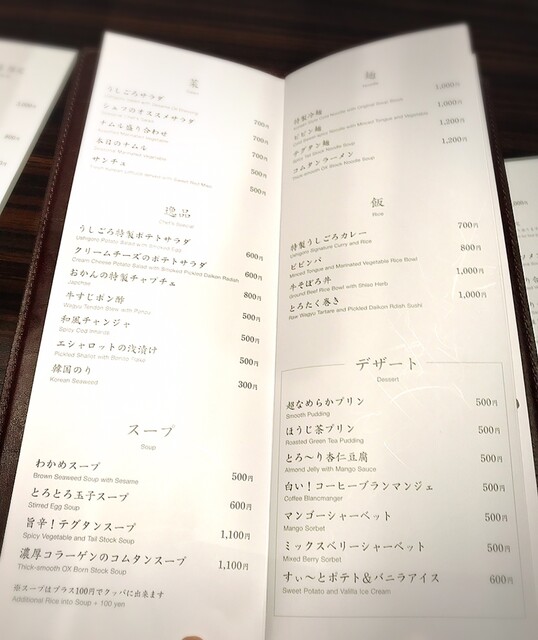 菜
うしごろサラダ
700円
シェフのオススメサラダ
700円
ナムル盛り合わせ
700円
本日のナムル
500円
サンチュ
500円
逸品
Chef's Special
うしごろ特製ポテトサラダ
600円
クリームチーズのポテトサラダ
Cream Cheese Potato Salad with Smoked Pickled Daikon Radish
600円
おかんの特製チャプチェ
Japchae
800円
牛すじポン酢
Wagyu Tendon Stew with Ponzu
500円
和風チャンジャ
Spicy Cod Innards
500円
エシャロットの浅漬け
Pickled Shallot with Bonito Flake
500円
韓国のり
Korean Seaweed
300円
スープ
Soup
わかめスープ
Brown Seaweed Soup with Sesame
500円
とろとろ玉子スープ
Stirred Egg Soup
600円
旨辛!テグタンスープ
Spicy Vegetable and Tail Stock Soup
1,100円
濃厚コラーゲンのコムタンスープ
Thick-smooth OX Born Stock Soup
1,100円
※スープはプラス100円でクッパに出来ます
Additional Rice into Soup + 100 yen
麺
Noodle
特製冷麺
1,000円
ビビン麺
1,000円
テグタン麺
1,200円
コムタンラーメン
Thick-smooth OX Stock Noodle Soup
1,200円
飯
Rice
特製うしごろカレー
Ushigoro Signature Curry and Rice
700円
ビビンバ
Minced Tongue and Marinated Vegetable Rice Bowl
800円
牛そぼろ丼
Ground Beef Rice Bowl with Shiso Herb
1,000円
とろたく巻き
Raw Wagyu Tartare and Pickled Daikon Potato Sushi
1,000円
デザート
Dessert
超なめらかプリン
Smooth Pudding
500円
ほうじ茶プリン
Roasted Green Tea Pudding
500円
とろ～り杏仁豆腐
Almond Jelly with Mango Sauce
500円
白い!コーヒーブランマンジェ
Coffee Blancmanger
500円
マンゴーシャーベット
Mango Sorbet
500円
ミックスベリーシャーベット
Mixed Berry Sorbet
500円
すぃ～とポテト&バニラアイス
Sweet Potato and Valilla Ice Cream
600円